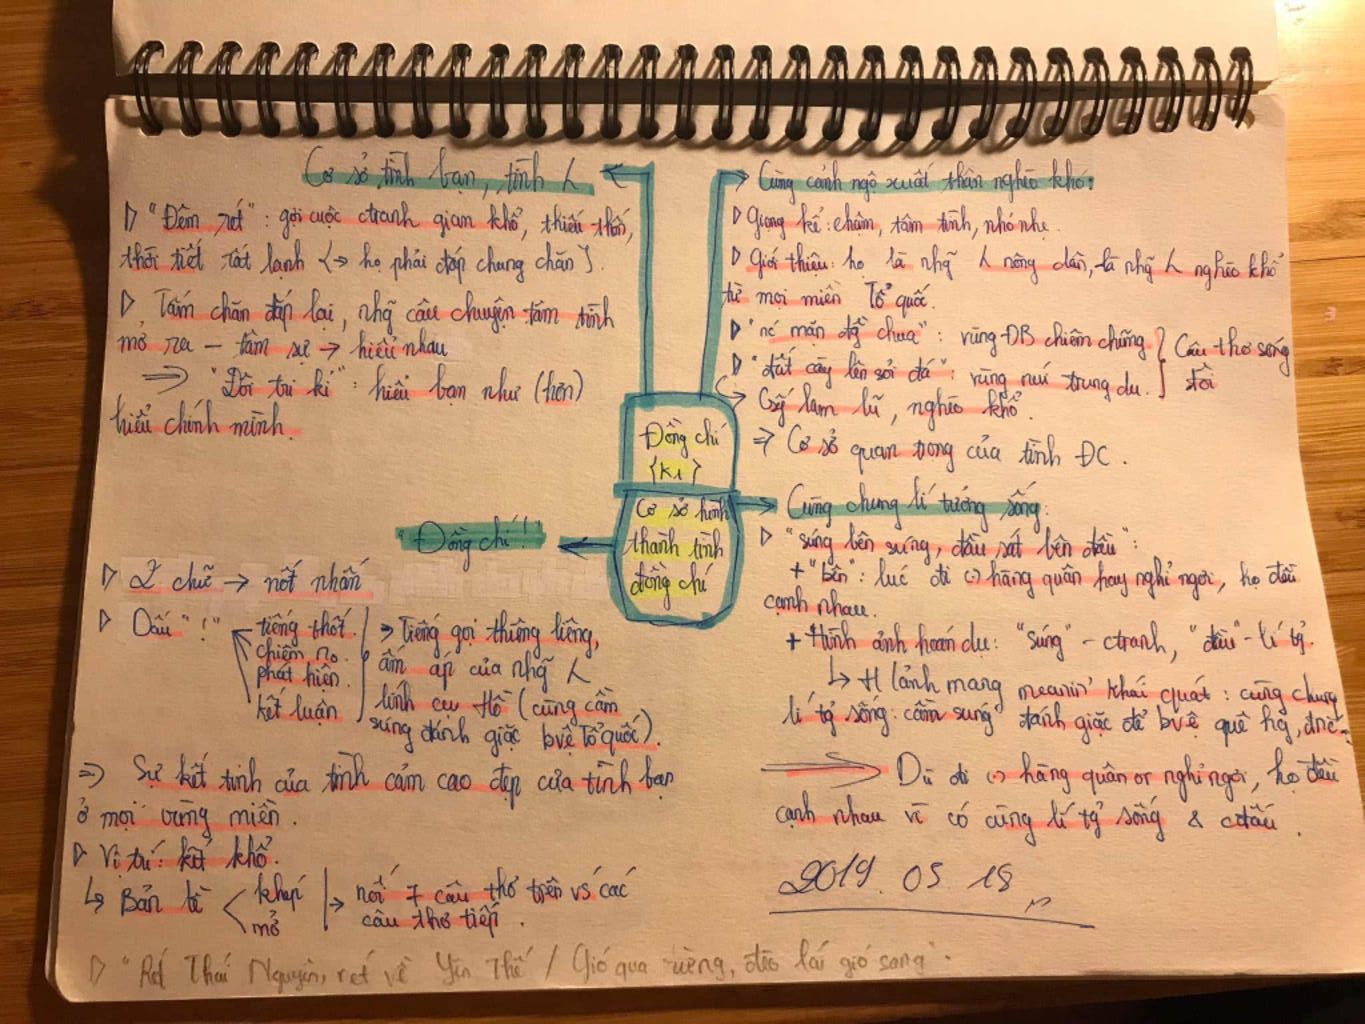 Cơ sở tình bạn, tình
▷ "Đêm rét": gợi cuộc ctranh gian khổ, thiếu thốn,
thời tiết rất lạnh {→ họ phải đắp chung chăn}.
▷ Tấm chăn đắp lại, nhg̃ câu chuyện tâm tình
mở ra – tâm sự → hiểu nhau
⇒ "Đôi tri kỉ": hiểu bạn như (hơn)
hiểu chính mình.
Cùng cảnh ngộ xuất thân nghèo khó:
▷ Giọng kể: chậm, tâm tình, nhỏ nhẹ.
▷ Giới thiệu: họ là nhg̃ nông dân, là nhg̃ nghèo khổ
từ mọi miền Tổ quốc.
▷ "nc mặn đg̀ chua": vùng ĐB chiêm chũng
▷ "đất cày lên sỏi đá": vùng núi trung du.
} Câu thơ sóng
đôi
lam lũ, nghèo khổ.
⇒ Cơ sở quan trọng của tình ĐC.
Đồng chí
{K1}
Cơ sở hình
thành tình
đồng chí
"Đồng chí!"
▷ 2 chữ → nốt nhấn
▷ Dấu "!"
tiếng thốt.
chiêm no
phát hiện.
kết luận
→ Tiếng gọi thiêng liêng,
ấm áp của nhg̃
lính cụ Hồ (cùng cầm
súng đánh giặc bvệ Tổ quốc).
⇒ Sự kết tinh của tình cảm cao đẹp của tình bạn
ở mọi vùng miền.
▷ Vị trí: kết khổ.
↳ Bản lề < khép
mở
→ nối 7 câu thơ trên vs các
câu thơ tiếp.
Cùng chung lí tưởng sống:
▷ "súng bên súng, đầu sát bên đầu":
+ "bên": lúc đi hàng quân hay nghỉ ngơi, họ đều
cạnh nhau.
+ Hình ảnh hoán dụ: "súng" – ctranh, "đầu" – lí tg̉.
↳ H/ảnh mang meanin' khái quát: cùng chung
lí tg̉ sống: cầm súng đánh giặc để bvệ quê hg,
→ Dù đi hàng quân or nghỉ ngơi, họ đều
cạnh nhau vì có cùng lí tg̉ sống & cđấu.
2019. 05. 18
▷ "Rét Thái Nguyên, rét về Yên Thế / Gió qua rừng, đèo lái gió sang".